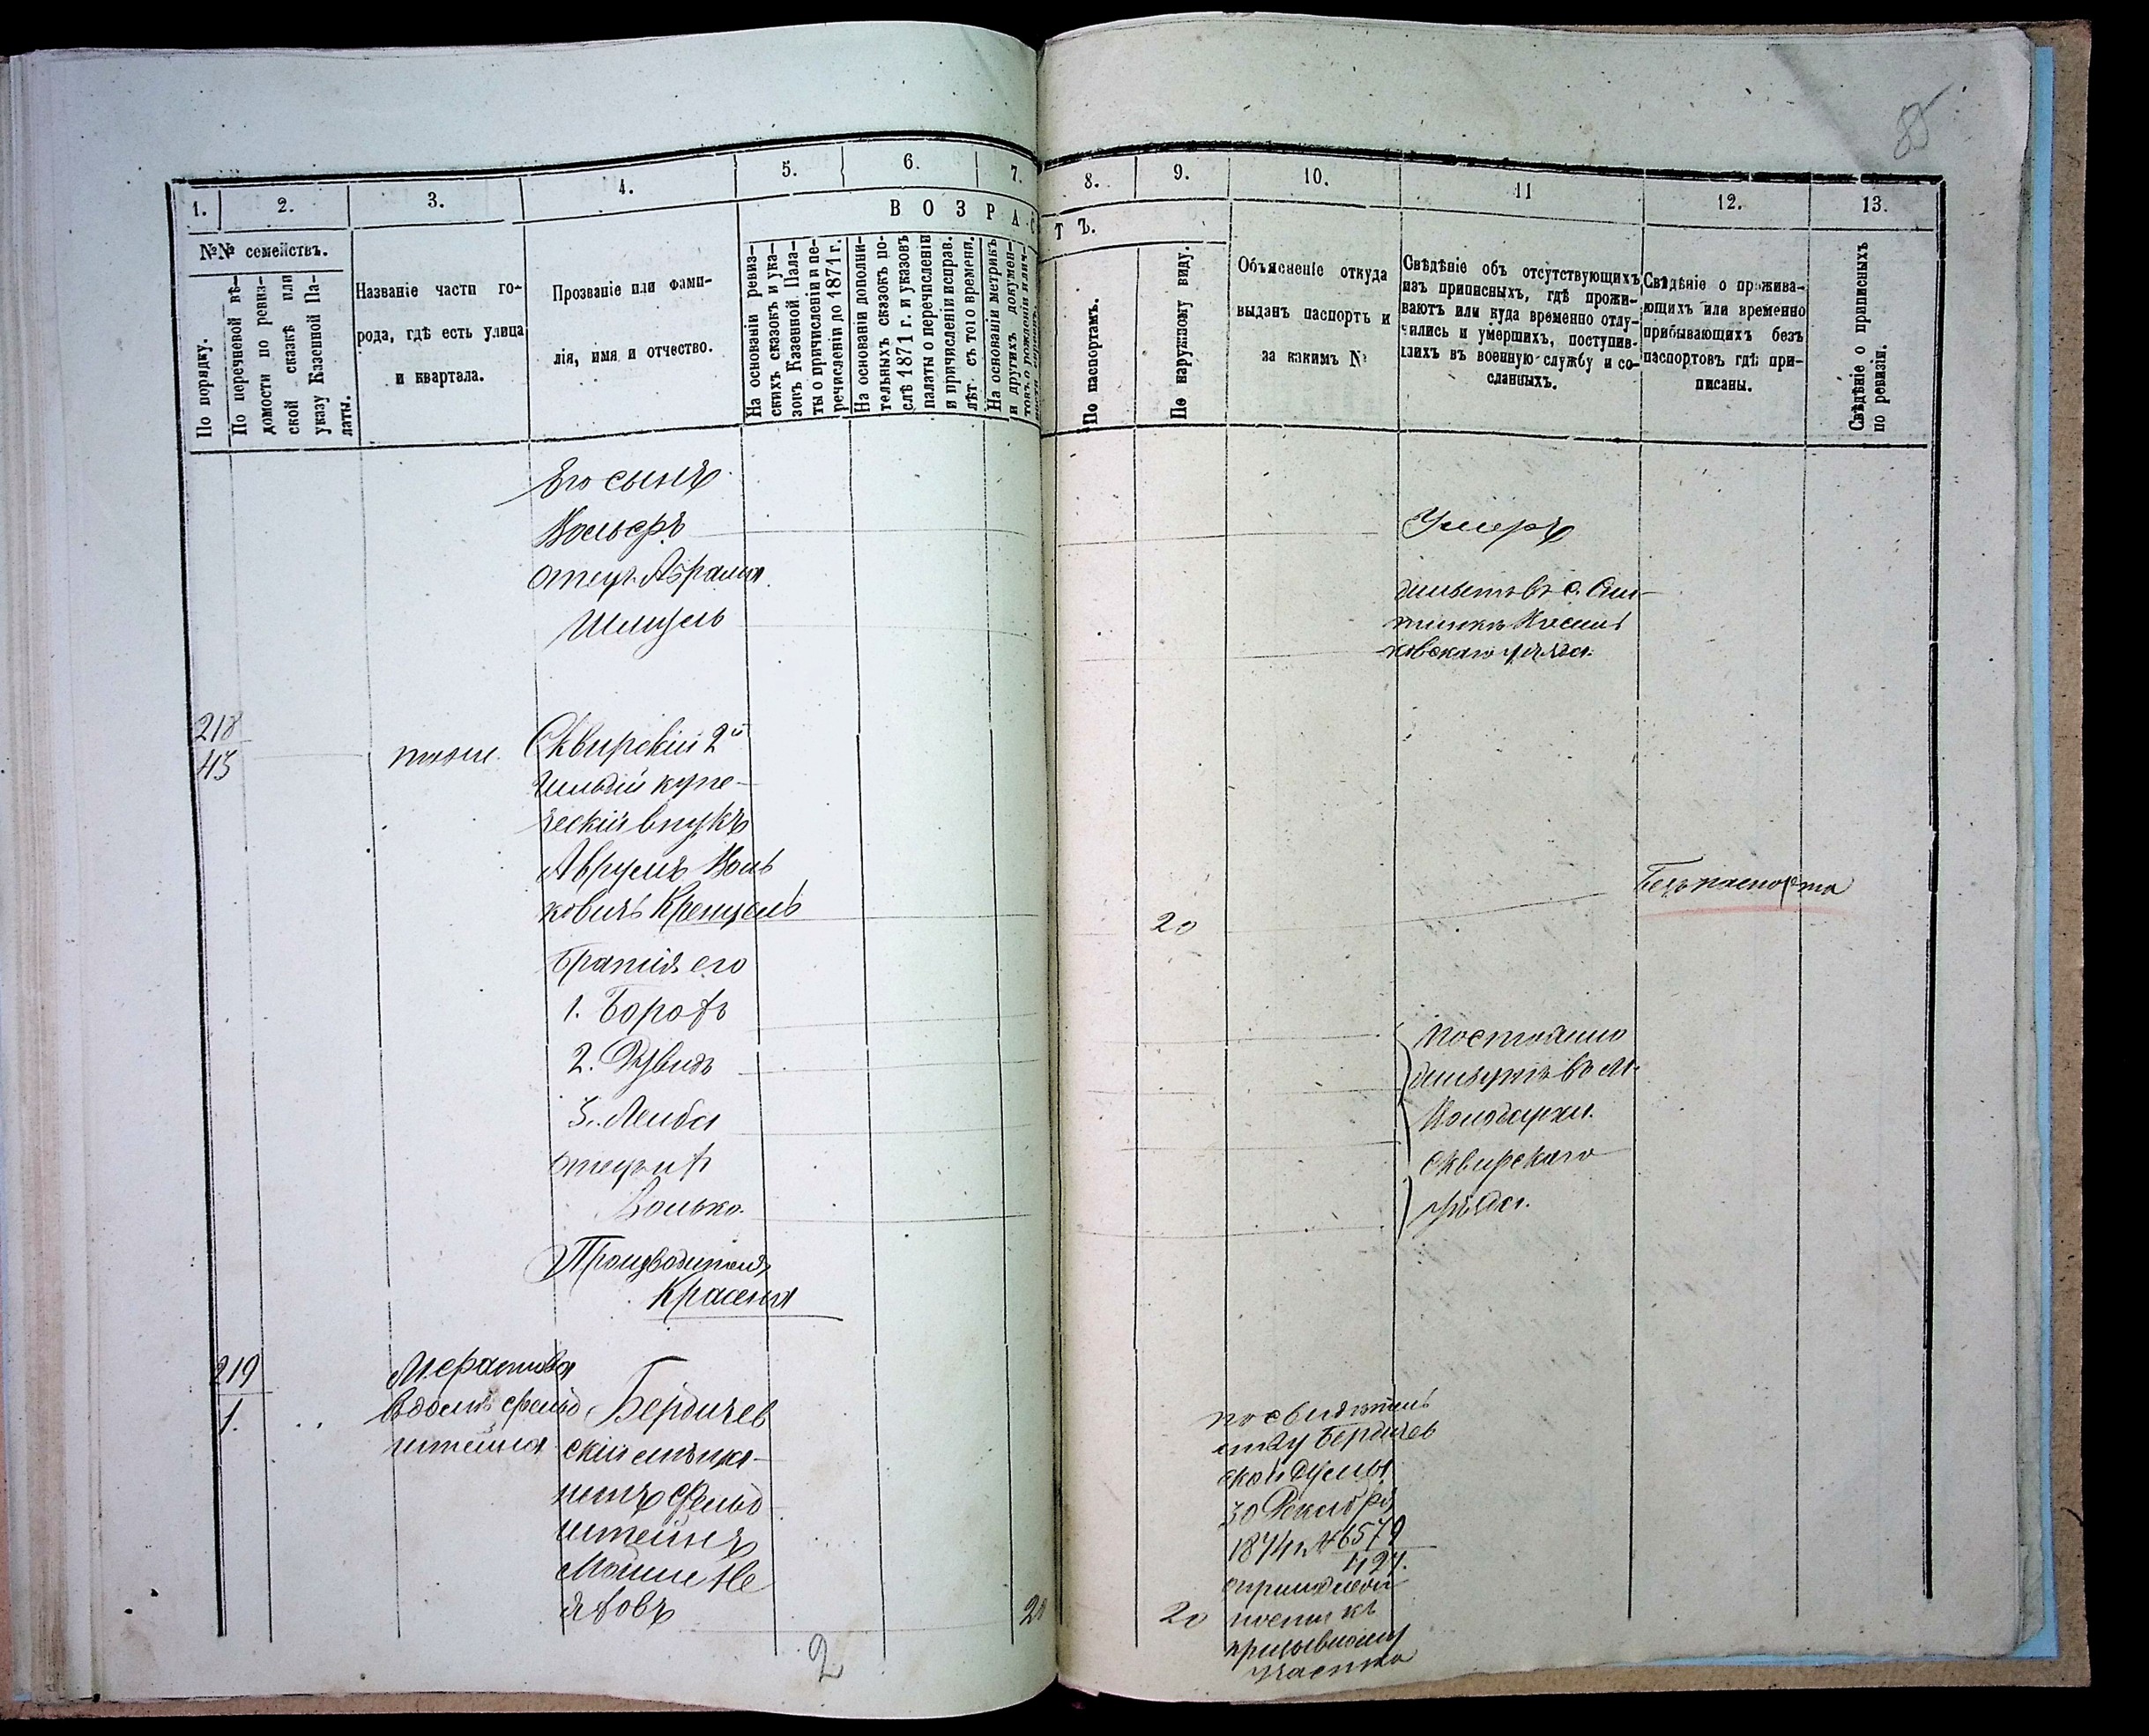 85
1.
2.
3.
4.
5.
6.
7.
8.
9.
10.
11
12.
13.
ВОЗРАС
ТЪ.
№№ семействъ.
По порядку.
По перечневой вѣ-
домости по ревиз-
ской сказкѣ или
указу Казенной Па-
латы.
Названіе части го-
рода, гдѣ есть улица
и квартала.
Прозваніе или фами-
лія, имя и отчество.
На основаніи ревиз-
скихъ сказокъ и ука-
зовъ Казенной Пала-
ты о причисленіи и пе-
речисленіи до 1871 г.
На основаніи дополни-
тельныхъ сказокъ по-
слѣ 1871 г. и указовъ
палаты о перечисленіи
и причисленіи исправ.
лѣт съ того времени.
На основаніи метрикъ
и другихъ докумен-
По паспортамъ.
По наружному виду.
Объясненіе откуда
выданъ паспортъ и
за какимъ №
Свѣдѣніе объ отсутствующихъ
изъ приписныхъ, гдѣ прожи-
ваютъ или куда временно отлу-
чились и умершихъ, поступив-
шихъ въ военную службу и со-
сланныхъ.
Свѣдѣніе о прожива-
ющихъ или временно
прибывающихъ безъ
паспортовъ гдѣ при-
писаны.
Свѣдѣніе о приписныхъ
по ревизіи.
Его сынъ
Вольфъ
Умеръ
отецъ Абрама
Шмуль
живетъ въ с.
уѣзда.
218
43
тоже.
Сквирскій 2й
гильдіи купе-
ческій внукъ
Аврумъ Воль
ковичъ Кренцель
20
Безъ паспорта
Братья его
1. Борохъ
2. Дувидъ
3. Лейба
отецъ ихъ
Волько.
постоянно
живутъ въ м.
Володарки
Сквирскаго
уѣзда.
Производитель
Красень
219
1.
Мератова
въ домѣ Фельд
штейна
Бердичев
скій мѣща-
нинъ Фельд
штейнъ
Мошко Не
яховъ
20
20
по свидѣтель
ству Бердичев
ской Думы
30 Декабря
1874 г. № 6579
427.
о припискѣ
къ
призывному
участку
2